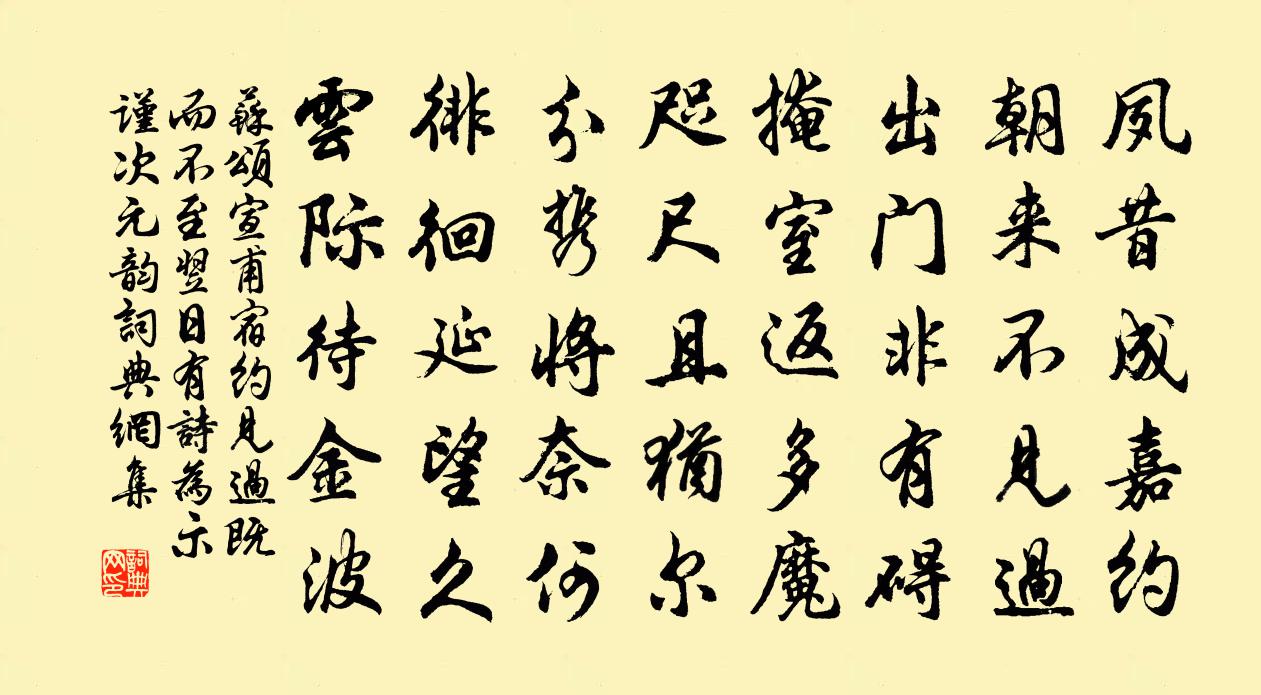 夙昔成嘉约
朝来不见過
出门非有碍
掩室返多魔
咫尺且猶尔
分携将奈何
徘徊延望久
雲际待金波
蘇頌宣甫宿约见過既
而不至翌日有詩為示
谨次元韵詞典網集
詞典网印